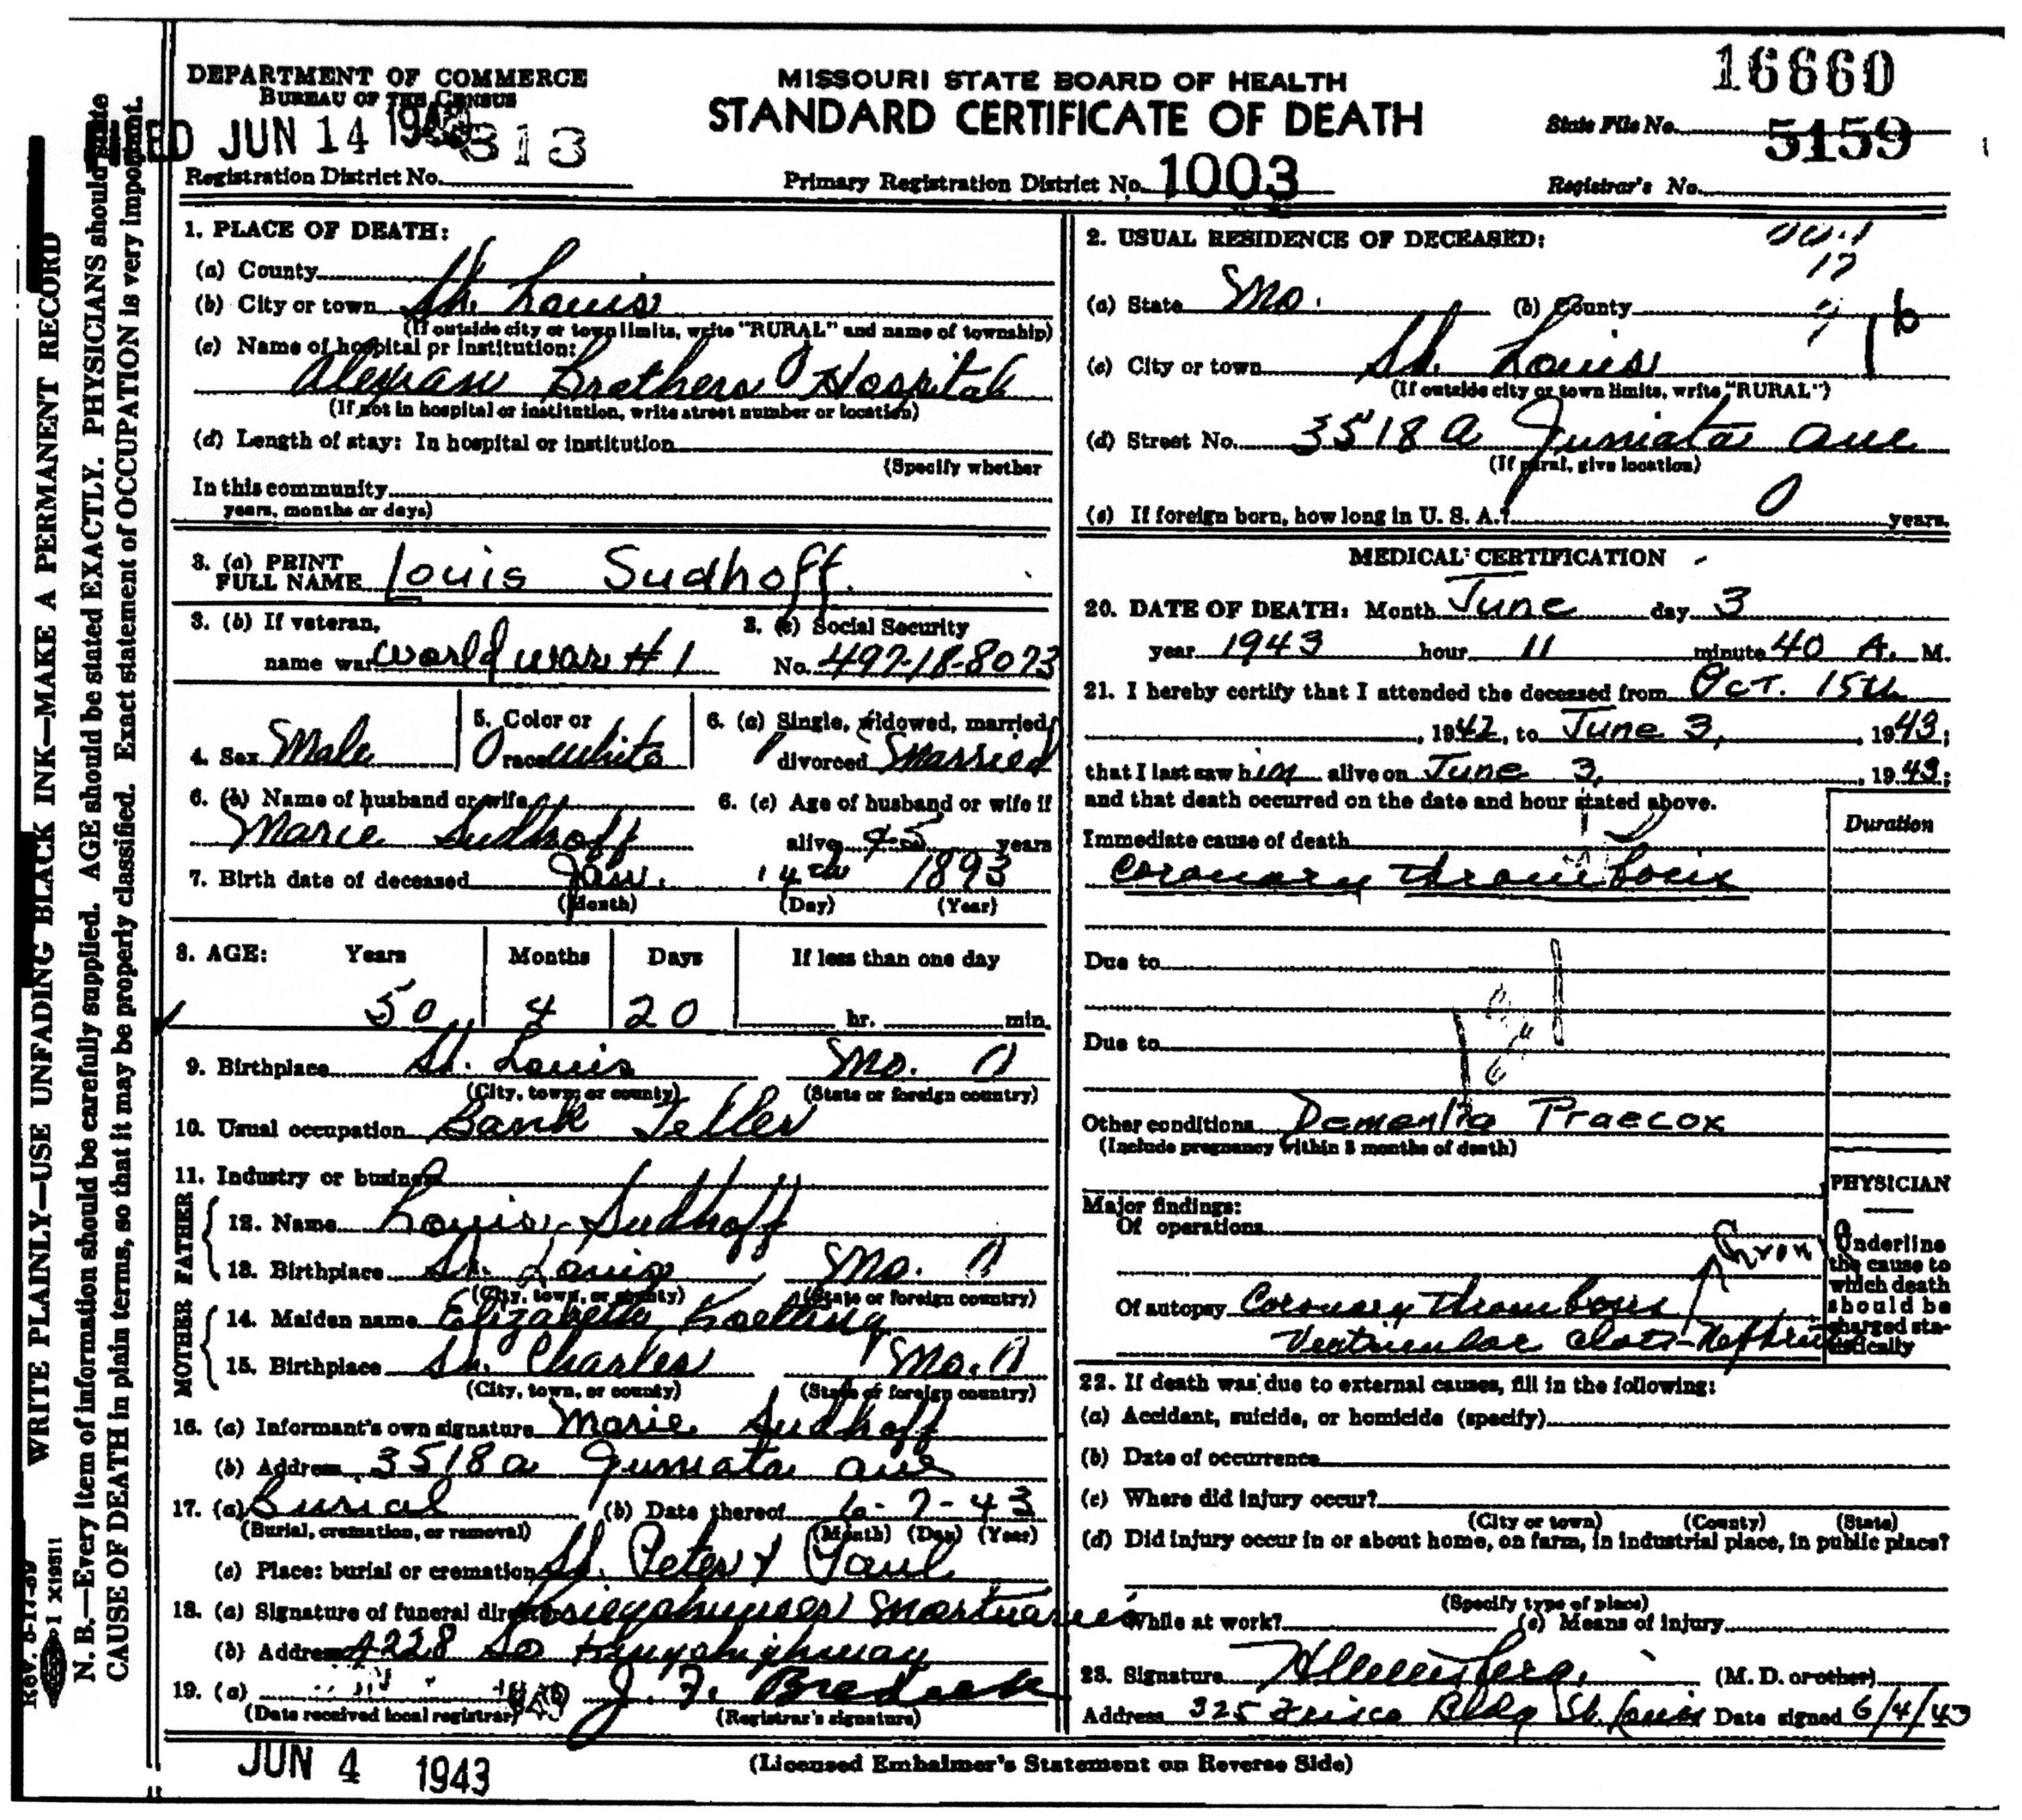 DEPARTMENT OF COMMERCE
BUREAU OF THE CENSUS
JUN 14
313
Registration District No.
MISSOURI STATE BOARD OF HEALTH
STANDARD CERTIFICATE OF DEATH
Primary Registration District No. 1003
16660
State File No.
5159
Registrar's No.
WRITE PLAINLY—USE UNFADING BLACK INK—MAKE A PERMANENT RECORD
N. B.—Every item of information should be carefully supplied. AGE should be stated EXACTLY. PHYSICIANS should state
CAUSE OF DEATH in plain terms, so that it may be properly classified. Exact statement of OCCUPATION is very important.
X19511
1. PLACE OF DEATH:
(a) County
(b) City or town St. Louis
(If outside city or town limits, write "RURAL" and name of township)
(c) Name of hospital or institution:
Alexian Brothers Hospital
(If not in hospital or institution, write street number or location)
(d) Length of stay: In hospital or institution
(Specify whether
In this community
years, months or days)
3. (a) PRINT
FULL NAME Louis Sudhoff.
3. (b) If veteran,
name war World War #1
3. (c) Social Security
No. 497-18-8073
4. Sex Male
5. Color or
race White
6. (a) Single, widowed, married,
divorced Married
6. (b) Name of husband or wife
Marie Sudhoff
6. (c) Age of husband or wife if
alive 45 years
7. Birth date of deceased Jan. 14th 1893
(Month) (Day) (Year)
8. AGE: Years Months Days If less than one day
50 4 20 hr. min.
9. Birthplace St. Louis Mo.
(City, town, or county) (State or foreign country)
10. Usual occupation Bank Teller
11. Industry or business
FATHER
12. Name Louis Sudhoff
13. Birthplace St. Louis Mo.
(City, town, or county) (State or foreign country)
MOTHER
14. Maiden name Elizabeth Koelling
15. Birthplace St. Charles Mo.
(City, town, or county) (State or foreign country)
16. (a) Informant's own signature Marie Sudhoff
(b) Address 3518a Juniata Ave
17. (a) Burial (b) Date thereof 6-7-43
(Burial, cremation, or removal) (Month) (Day) (Year)
(c) Place: burial or cremation St. Peter & Paul
18. (a) Signature of funeral director Kriegshauser Mortuaries
(b) Address 4228 So Kingshighway
19. (a) J. F. Bredeck
(Date received local registrar) (Registrar's signature)
JUN 4 1943
2. USUAL RESIDENCE OF DECEASED:
17
(a) State Mo. (b) County
(c) City or town St. Louis
(If outside city or town limits, write "RURAL")
(d) Street No. 3518 A Juniata Ave
(If rural, give location)
(e) If foreign born, how long in U. S. A.? 0 years.
MEDICAL CERTIFICATION
20. DATE OF DEATH: Month June day 3
year 1943 hour 11 minute 40 A. M.
21. I hereby certify that I attended the deceased from Oct. 15th
1942, to June 3, 1943;
that I last saw him alive on June 3, 1943;
and that death occurred on the date and hour stated above.
Duration
Immediate cause of death
Coronary thrombosis
Due to
Due to
Other conditions Dementia Praecox
(Include pregnancy within 3 months of death)
Major findings:
Of operations
Chron
Of autopsy Coronary Thrombosis
Ventricular clots-Nephritis
PHYSICIAN
Underline
the cause to
which death
should be
charged sta-
tistically
22. If death was due to external causes, fill in the following:
(a) Accident, suicide, or homicide (specify)
(b) Date of occurrence
(c) Where did injury occur?
(City or town) (County) (State)
(d) Did injury occur in or about home, on farm, in industrial place, in public place?
(Specify type of place)
While at work? (e) Means of injury
23. Signature (M. D. or other)
Address 325 Frisco Bldg St. Louis Date signed 6/4/43
(Licensed Embalmer's Statement on Reverse Side)